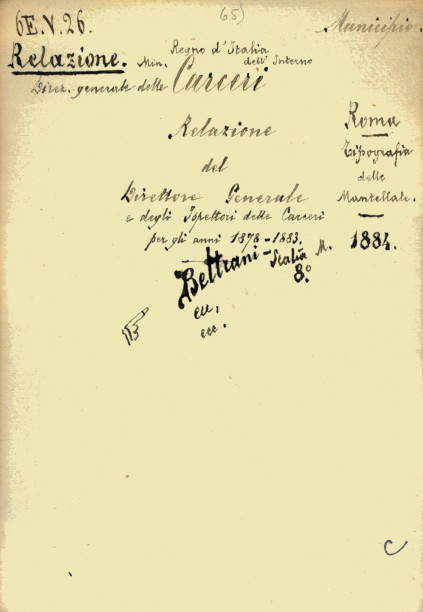 (65)
6E.V.26.
Municipio.
Relazione. Min. Regno d'Italia dell'Interno
Direz. generale delle Carceri
Relazione
del
Direttore Generale
e degli Ispettori delle Carceri
per gli anni 1878-1883.
Roma
Tipografia
delle
Mantellate.
1884.
Beltrani-Scalia M.
8.º
ecc.
C